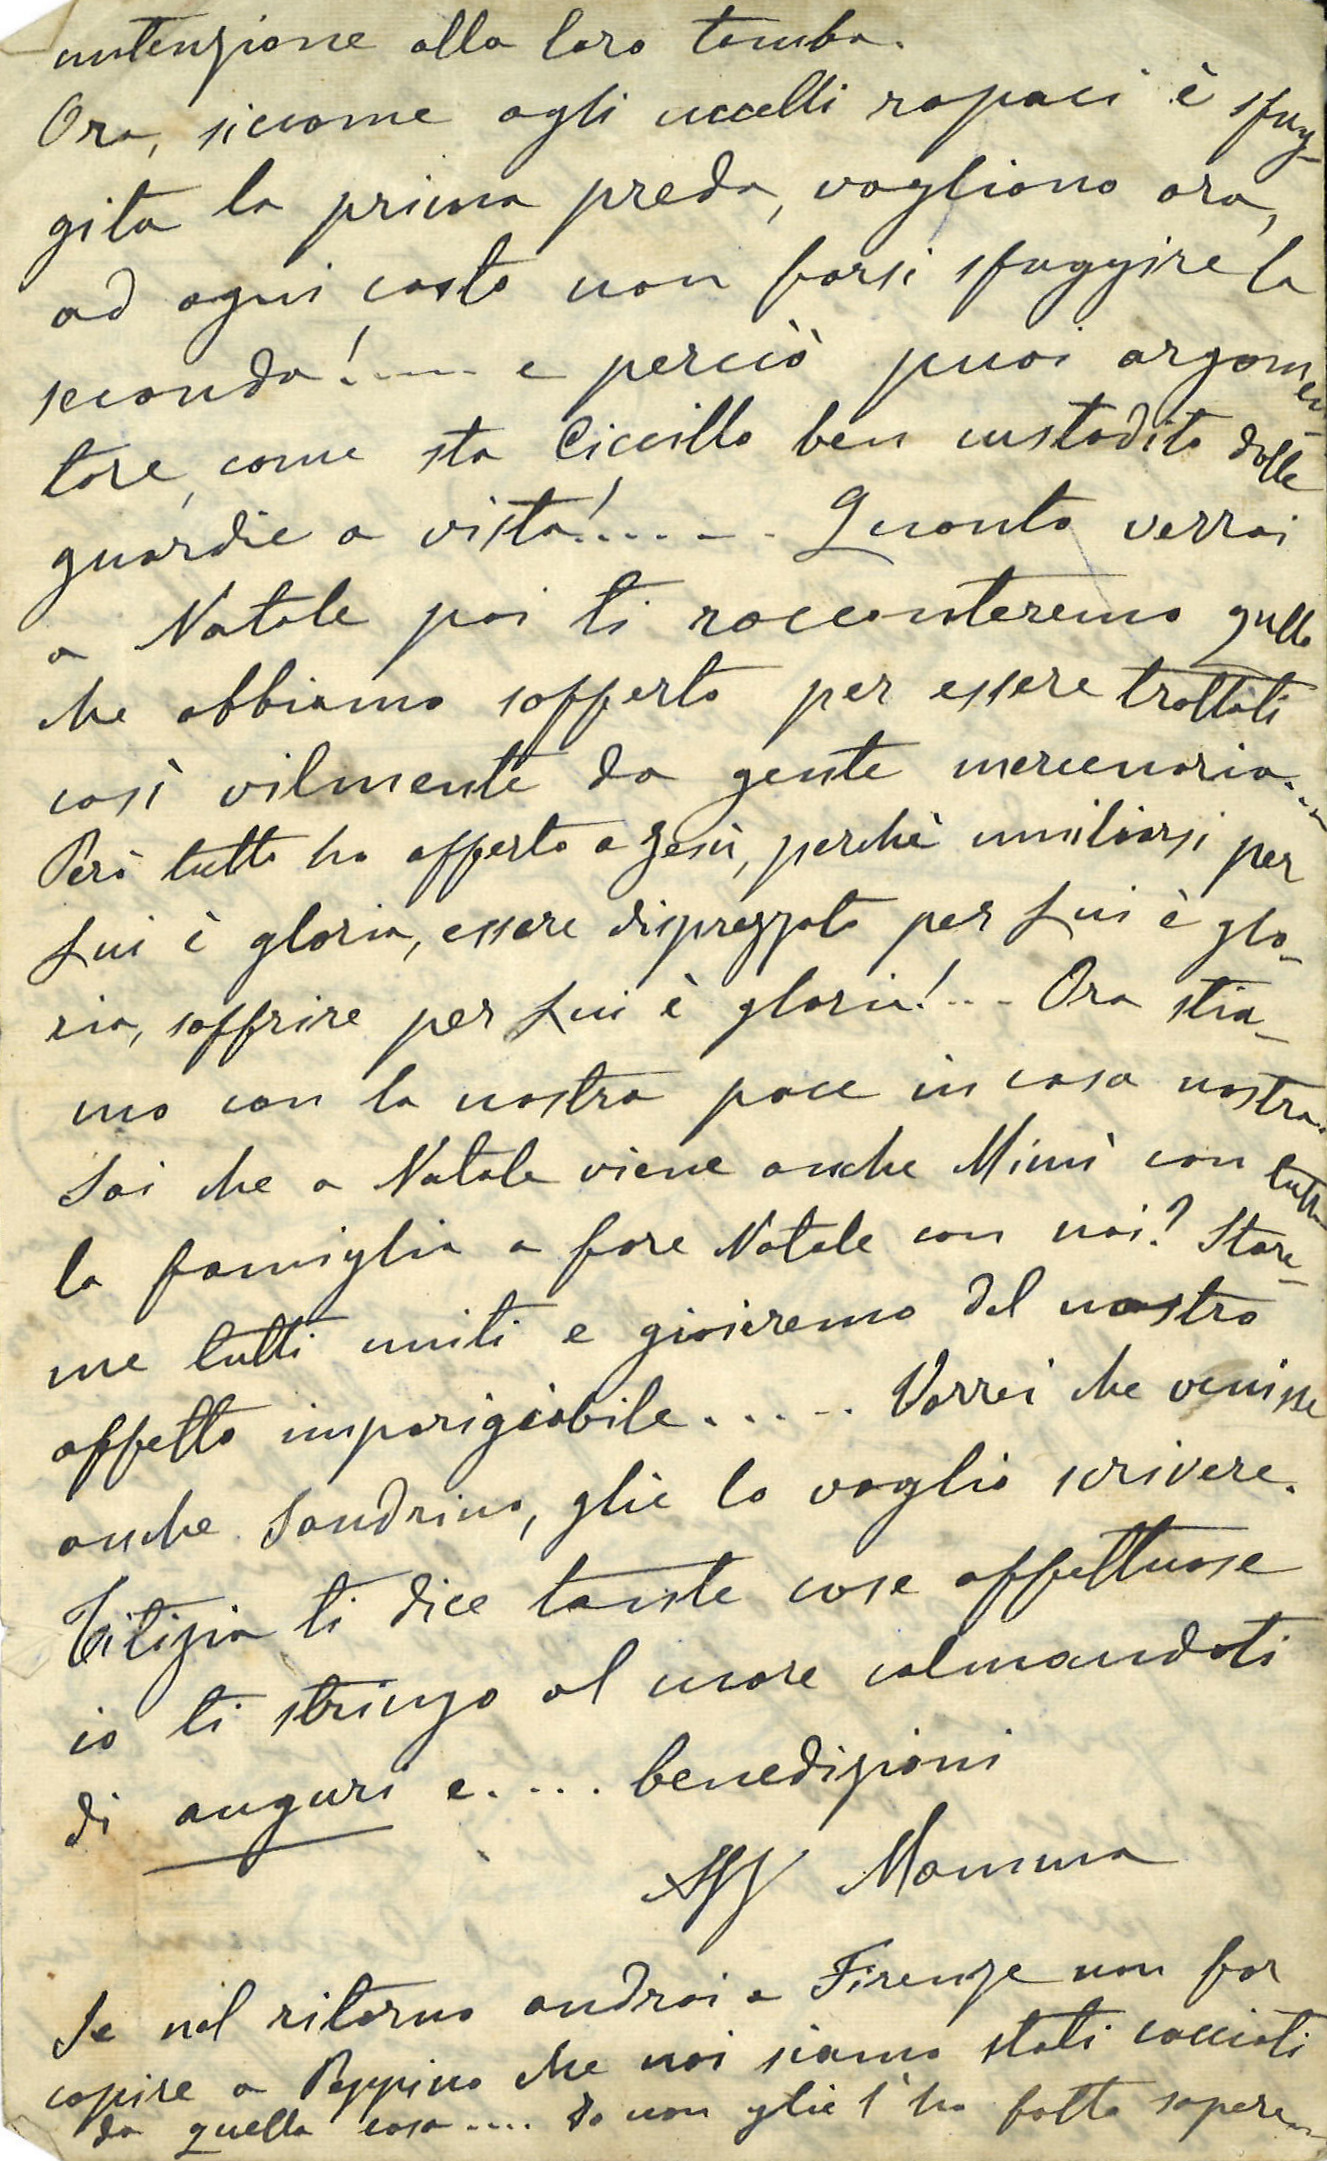 untenzione alla loro tomba.
Ora, siccome agli uccelli rapaci è sfug-
gita la prima preda, vogliono ora,
ad ogni costo non farsi sfuggire la
seconda!..... e perciò puoi argomen-
tare, come sta Ciccillo ben custodito dalle
guardie a vista!...... Quanto verrai
a Natale poi ti racconteremo quello
che abbiamo sofferto per essere trattati
così vilmente da gente mercenaria....
Però tutto ho offerto a Gesù, perchè umiliarsi per
Lui è gloria, essere disprezzato per Lui è glo-
ria, soffrire per Lui è gloria!... Ora stia-
mo con la nostra pace in casa nostra.
Sai che a Natale viene anche Mimì con tutta
la famiglia a fare Natale con noi? Stare-
me tutti uniti e gioieremo del nostro
affetto imparigiabile...... Vorrei che venisse
anche Sandrino, glie lo voglio scrivere.
Titizia ti dice tante cose affettuose
io ti stringo al cuore colmandoti
di auguri e.... benedizioni
Aff Mamma
Se nel ritorno andrai a Firenze non far
capire a Peppino che noi siamo stati cacciati
da quella casa.... Io non glie l'ho fatto sapere...